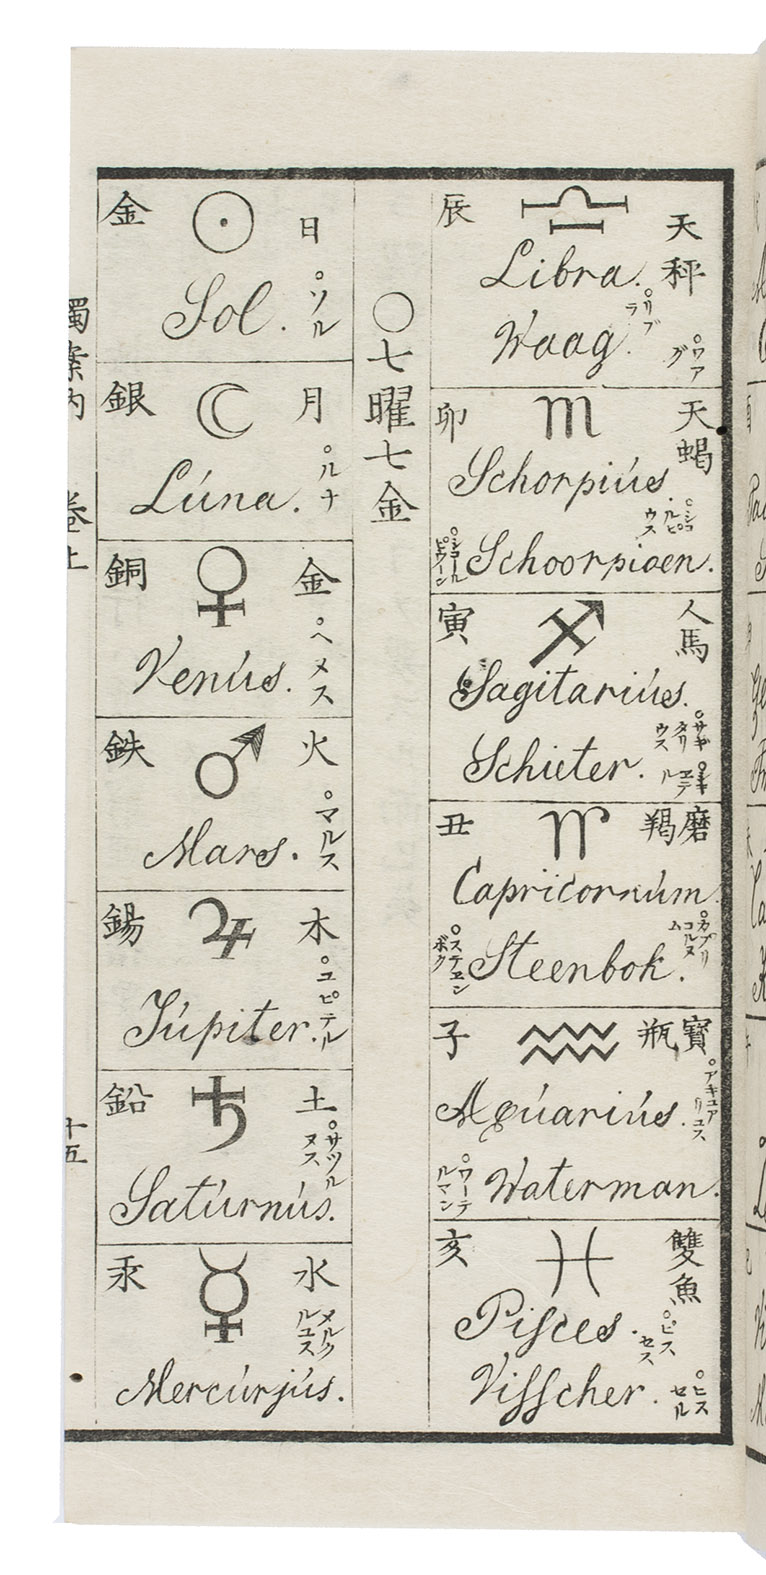 天秤
辰
Libra.
リブラ
Waag.
ワアグ
天蝎
卯
Schorpiús
シコルピウス
Schoorpioen.
シコールピウーン
人馬
寅
Sagitariús.
サギタリウス
Schieter.
シキエテル
磨羯
丑
Capricornúm
カプリコルヌム
Steenbok.
ステエンボク
寶瓶
子
Aqúariús.
アキュアリユス
Waterman.
ワーテルマン
雙魚
亥
Pisces.
ピスセス
Visscher.
ヒスセル
〇七曜七金
日
金
Sol.
ソル
月
銀
Lúna.
ルナ
金
銅
Venús.
ヘメス
火
鉄
Mars.
マルス
木
錫
Júpiter.
ユピテル
土
鉛
Satúrnús.
サツルヌス
水
汞
Mercúrjús.
メルクルユス
案内
十五